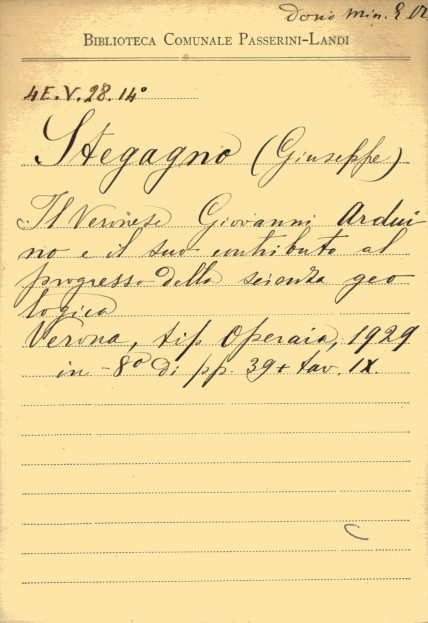 dono min. E.
BIBLIOTECA COMUNALE PASSERINI-LANDI
4E.V.28.14°
Stegagno (Giuseppe)
Il Veronese Giovanni Ardui
no e il suo contributo al
progresso della scienza geo
logica
Verona, tip Operaia, 1929
in-8° di pp. 39+ tav. IX.